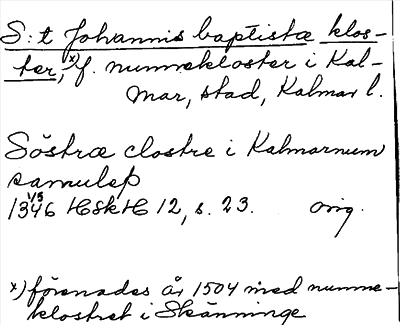 S:t Johannis baptistæ klos-
ter, x) f. nunnekloster i Kal-
mar, stad, Kalmar l.
Söstræ clostre i Kalmarnum
samulep
1/5
1346 HSkH 12, s. 23. orig.
x) förenades år 1504 med nunne-
klostret i Skänninge